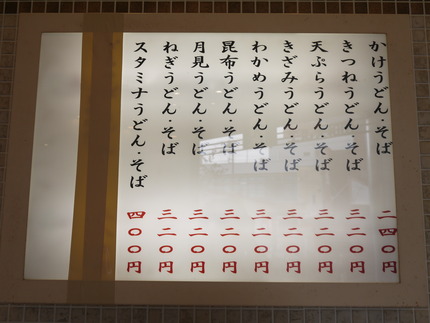 かけうどん・そば 二四〇円
きつねうどん・そば 三二〇円
天ぷらうどん・そば 三二〇円
きざみうどん・そば 三二〇円
わかめうどん・そば 三二〇円
昆布うどん・そば 三二〇円
月見うどん・そば 三二〇円
ねぎうどん・そば 三二〇円
スタミナうどん・そば 四〇〇円